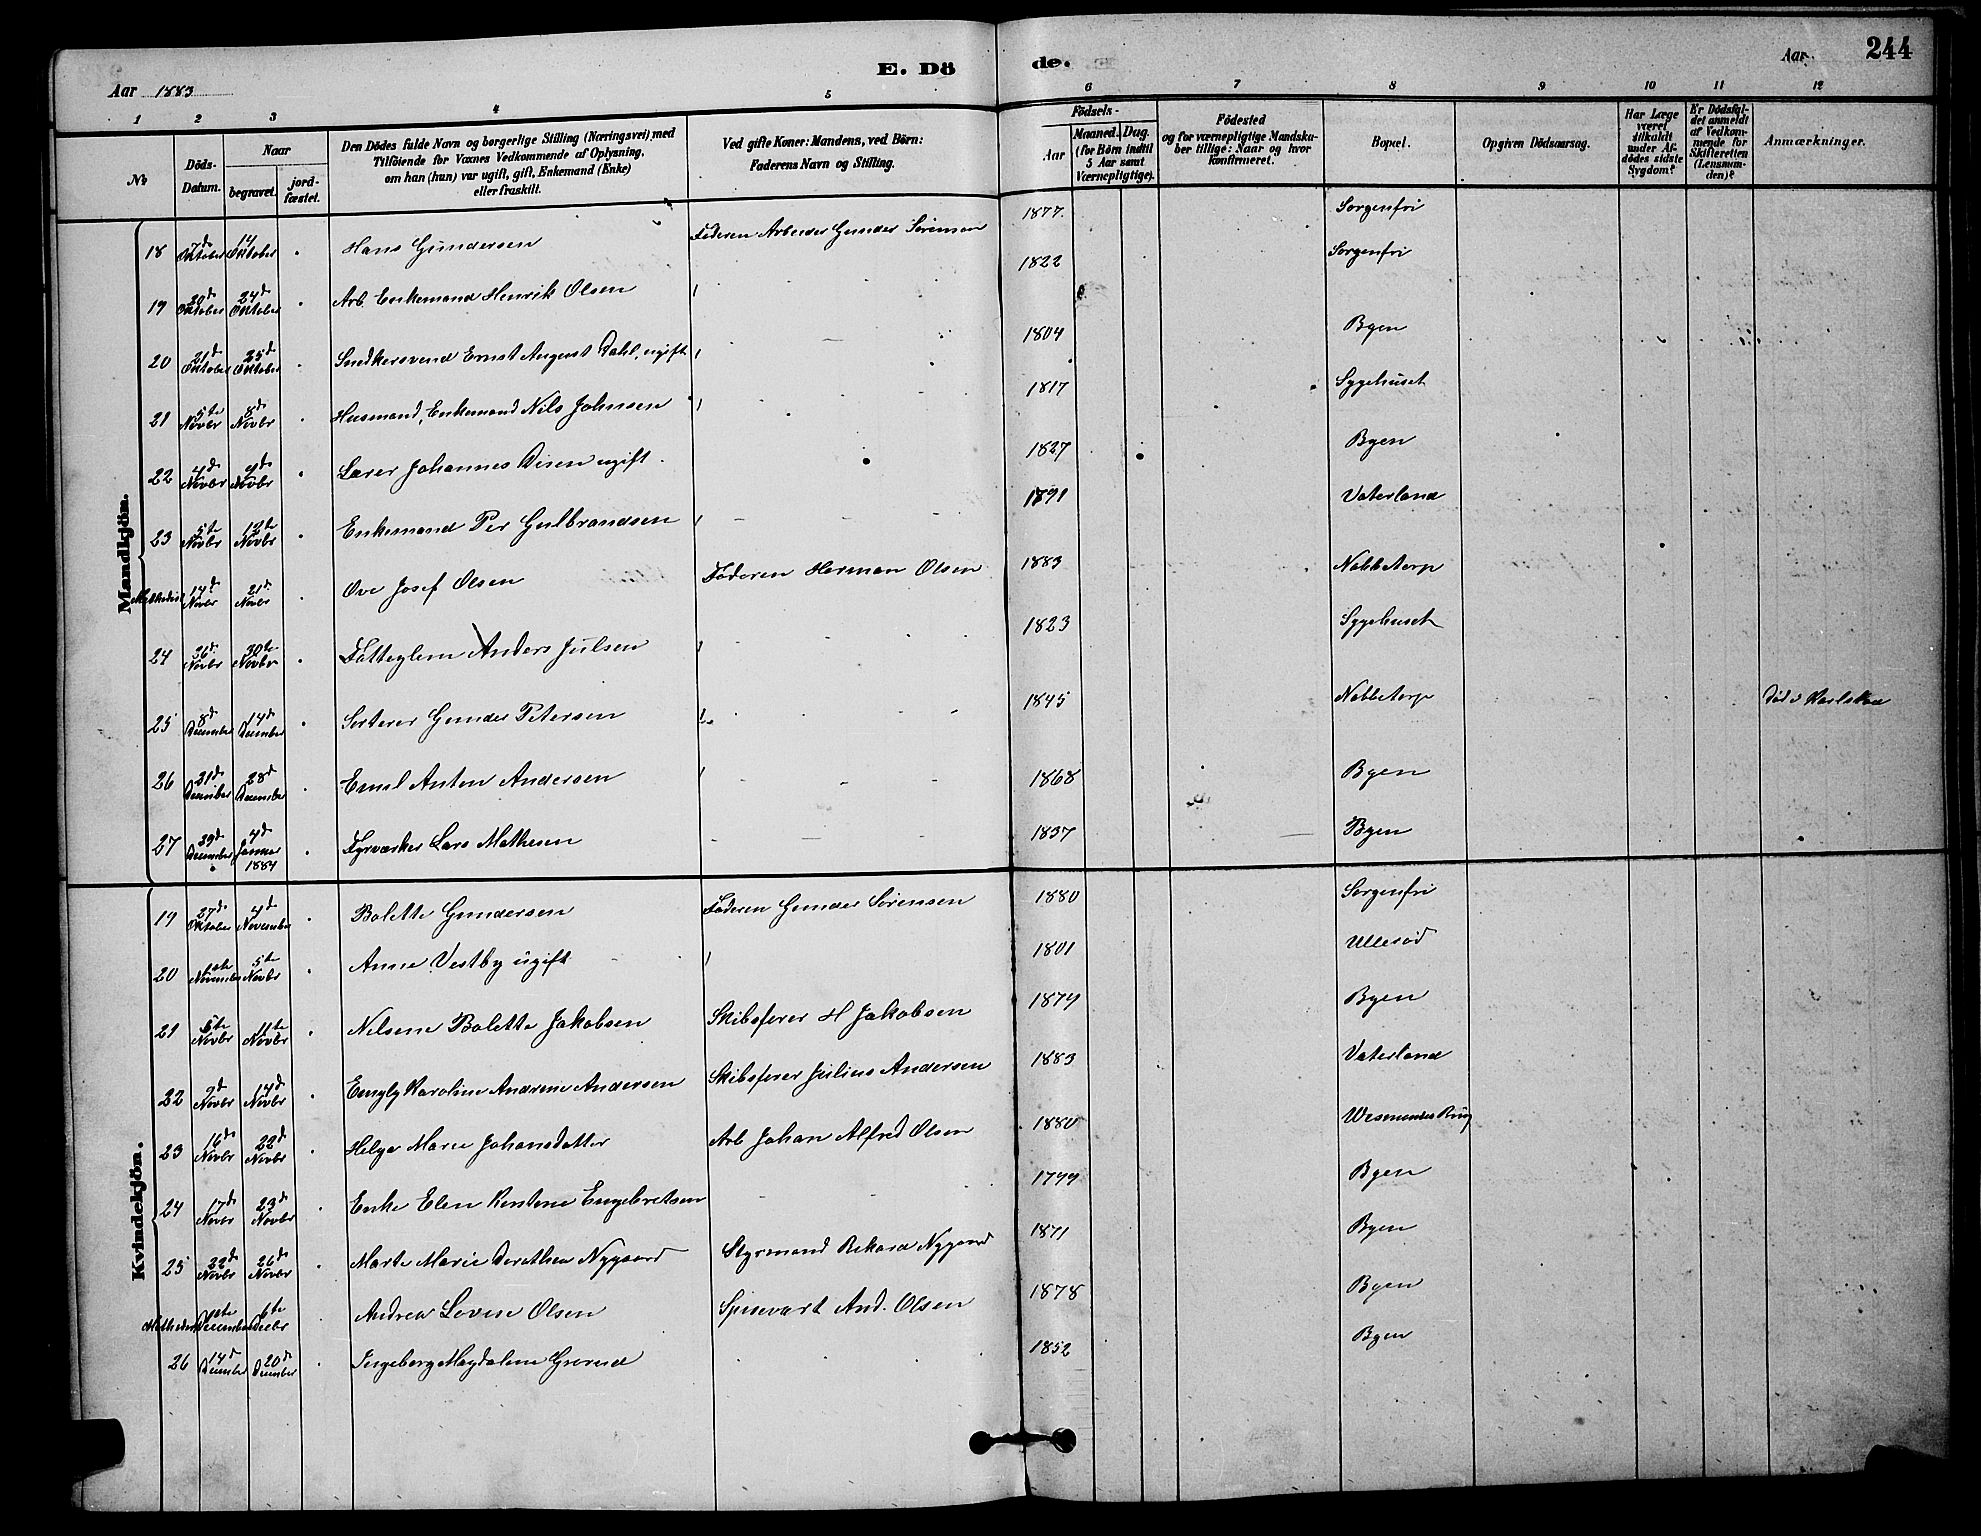 Aar 1883. E. Dö de. Aar 244
1 2 3 4 5 6 7 8 9 10 11 12
№ Döds-Datum. Naar begravet. jordfæstet. Den Dödes fulde Navn og borgerlige Stilling (Næringsvei), med Tilföiende for Voxnes Vedkommende af Oplysning, om han (hun) var ugift, gift, Enkemand (Enke) eller fraskilt. Ved gifte Koner: Mandens, ved Börn: Faderens Navn og Stilling. Födsels- Aar Maaned. Dag. (for Börn indtil 5 Aar samt Værnepligtige). Födested og for værnepligtige Mandskaber tillige: Naar og hvor Konfirmeret. Bopæl. Opgiven Dödsaarsag. Har Læge været tilkaldt under Afdödes sidste Sygdom? Er Dödsfaldet anmeldt af Vedkommende for Skifteretten (Lensmanden)? Anmærkninger.
Mandkjön.
18 7d Oktober 14 Oktober Hans Gundersen Faderen Arbeider Gunder Sörensen 1877 Sorgenfri
19 20d Oktober 24d Oktober Arb. Enkemand Henrik Olsen 1822 Sorgenfri
20 21d Oktober 25d Oktober Snedkersvend Ernst August Dahl, ugift 1804 Byen
21 5te Novbr 8d Novbr Husmand, Enkemand Nils Johnsen 1817 Sygehuset
22 4d Novbr 9d Novbr Lærer Johannes Disen ugift 1827 Byen
23 5te Novbr 12te Novbr Enkemand Per Gulbrandsen Vaterland
Methodist 14d Novbr 21d Novbr Ove Josef Olsen Faderen Herman Olsen 1883 Nabbetorp
24 26d Novbr 30te Novbr Fattiglem Anders Julsen 1823 Sygehuset
25 8d December 14d December Sorterer Gunder Petersen 1845 Nabbetorp Död i Karlstad
26 21d December 28d December Emil Anton Andersen 1868 Byen
27 29d December 4d Januar 1884 Fyrværker Lars Mathesen 1837 Byen
Kvindekjön.
19 27d Oktober 4d November Bolette Gundersen Faderen Gunder Sörensen 1880 Sorgenfri
20 1ste November 5te Novbr Anne Vestby ugift 1801 Ulleröd
21 5te Novbr 11te Novbr Nilsine Bolette Jakobsen Skibsförer H Jakobsen 1879 Byen
22 9d Novbr 14d Novbr Emyly Karoline Andrine Andersen Skibsförer Julius Andersen 1883 Vaterland
23 16d Novbr 22d Novbr Helga Marie Johansdatter Arb Johan Alfred Olsen 1880
24 17d Novbr 23d Novbr Enke Elen Kerstine Engebretsen 1799 Byen
25 22d Novbr 26d Novbr Marte Marie Dorethea Nygaard Styrmand Rikard Nygaard 1871 Byen
Methodist 1ste December 6te Decbr Andrea Lovise Olsen Spisevært And. Olsen 1878 Byen
26 14d December 20d December Ingeborg Magdalene Grorud 1852 Byen